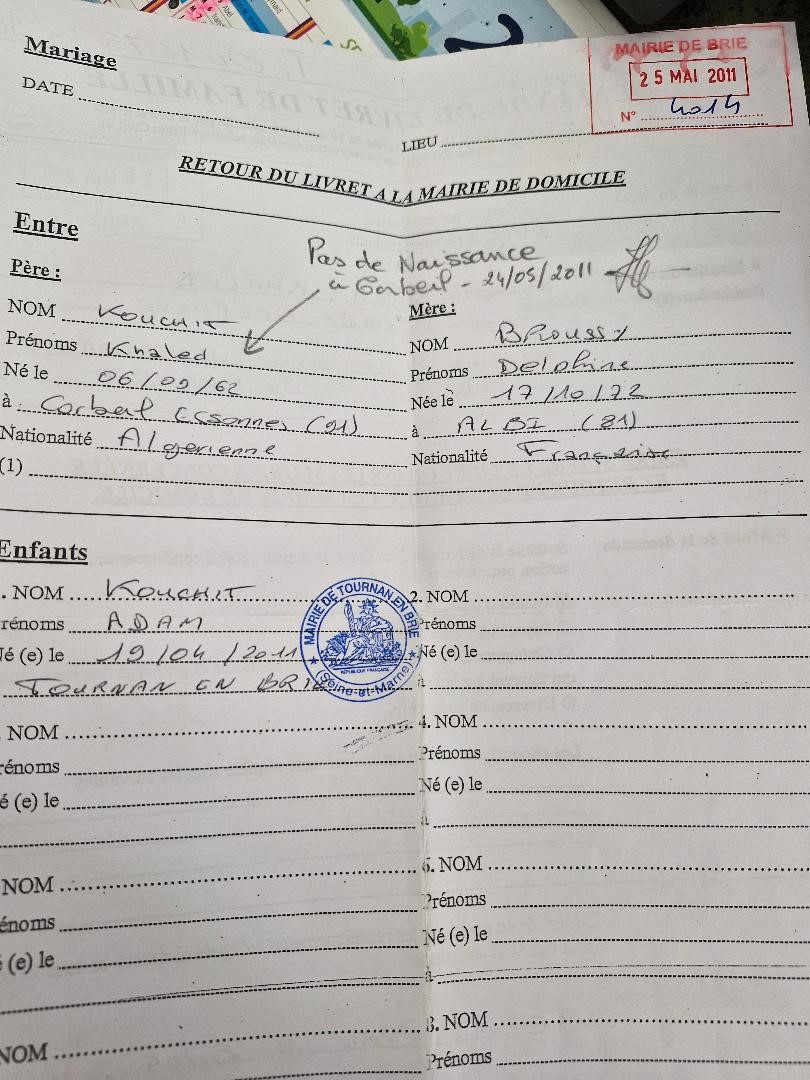 Mariage
MAIRIE DE BRIE
25 MAI 2011
N° 4014
DATE
LIEU
RETOUR DU LIVRET A LA MAIRIE DE DOMICILE
Entre
Pas de Naissance
à Corbeil - 24/05/2011
Père :
Mère :
NOM Kouchit
NOM BROUSSY
Prénoms Khaled
Prénoms Delphine
Né le 06/09/62
Née le 17/10/72
à Corbeil Essonnes (91)
à ALBI (81)
Nationalité Algerienne
Nationalité Française
(1)
Enfants
. NOM KOUCHIT
2. NOM
rénoms ADAM
Prénoms
Né (e) le 19/04/2011
Né (e) le
TOURNAN EN BRIE
à
MAIRIE DE TOURNAN EN BRIE
REPUBLIQUE FRANÇAISE
(Seine-et-Marne)
. NOM
4. NOM
rénoms
Prénoms
é (e) le
Né (e) le
à
NOM
6. NOM
énoms
Prénoms
(e) le
Né (e) le
à
NOM
8. NOM
Prénoms